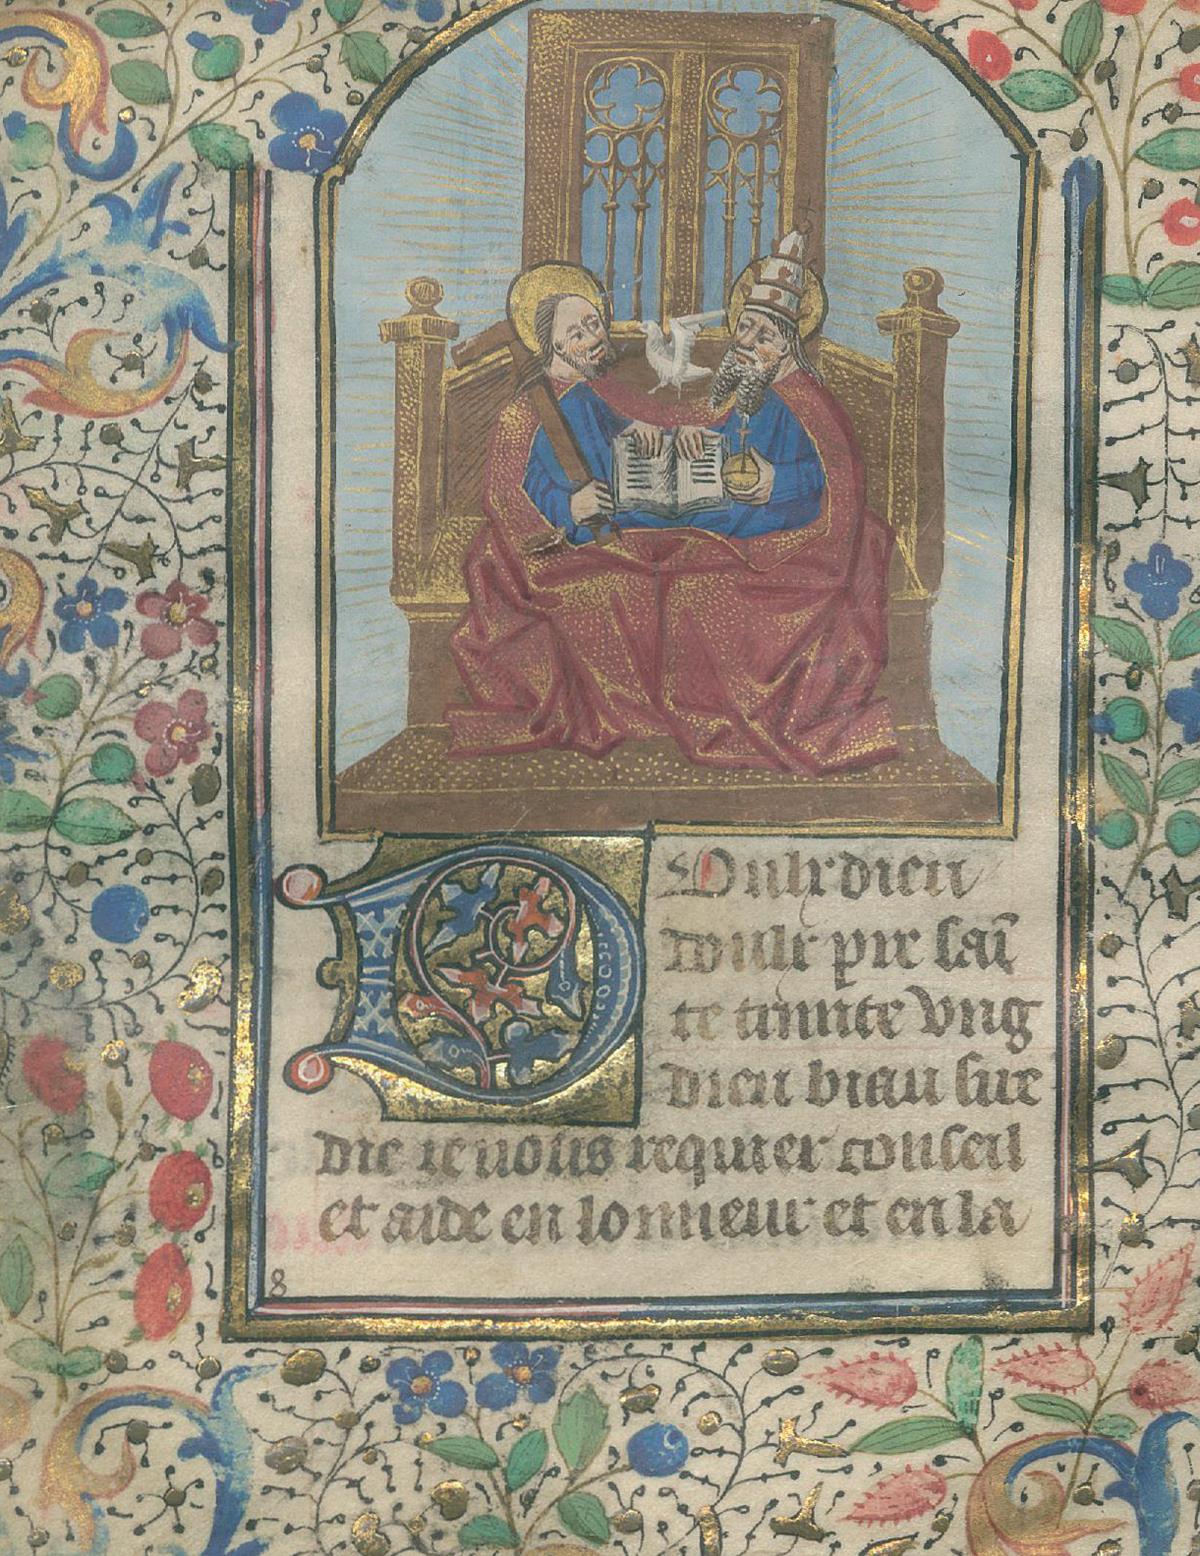 Doulx dieu
doulx pere sai̅
te trinite vng
dieu biau sire
die ie uous requier conseil
et aide en lonneur et en la
8